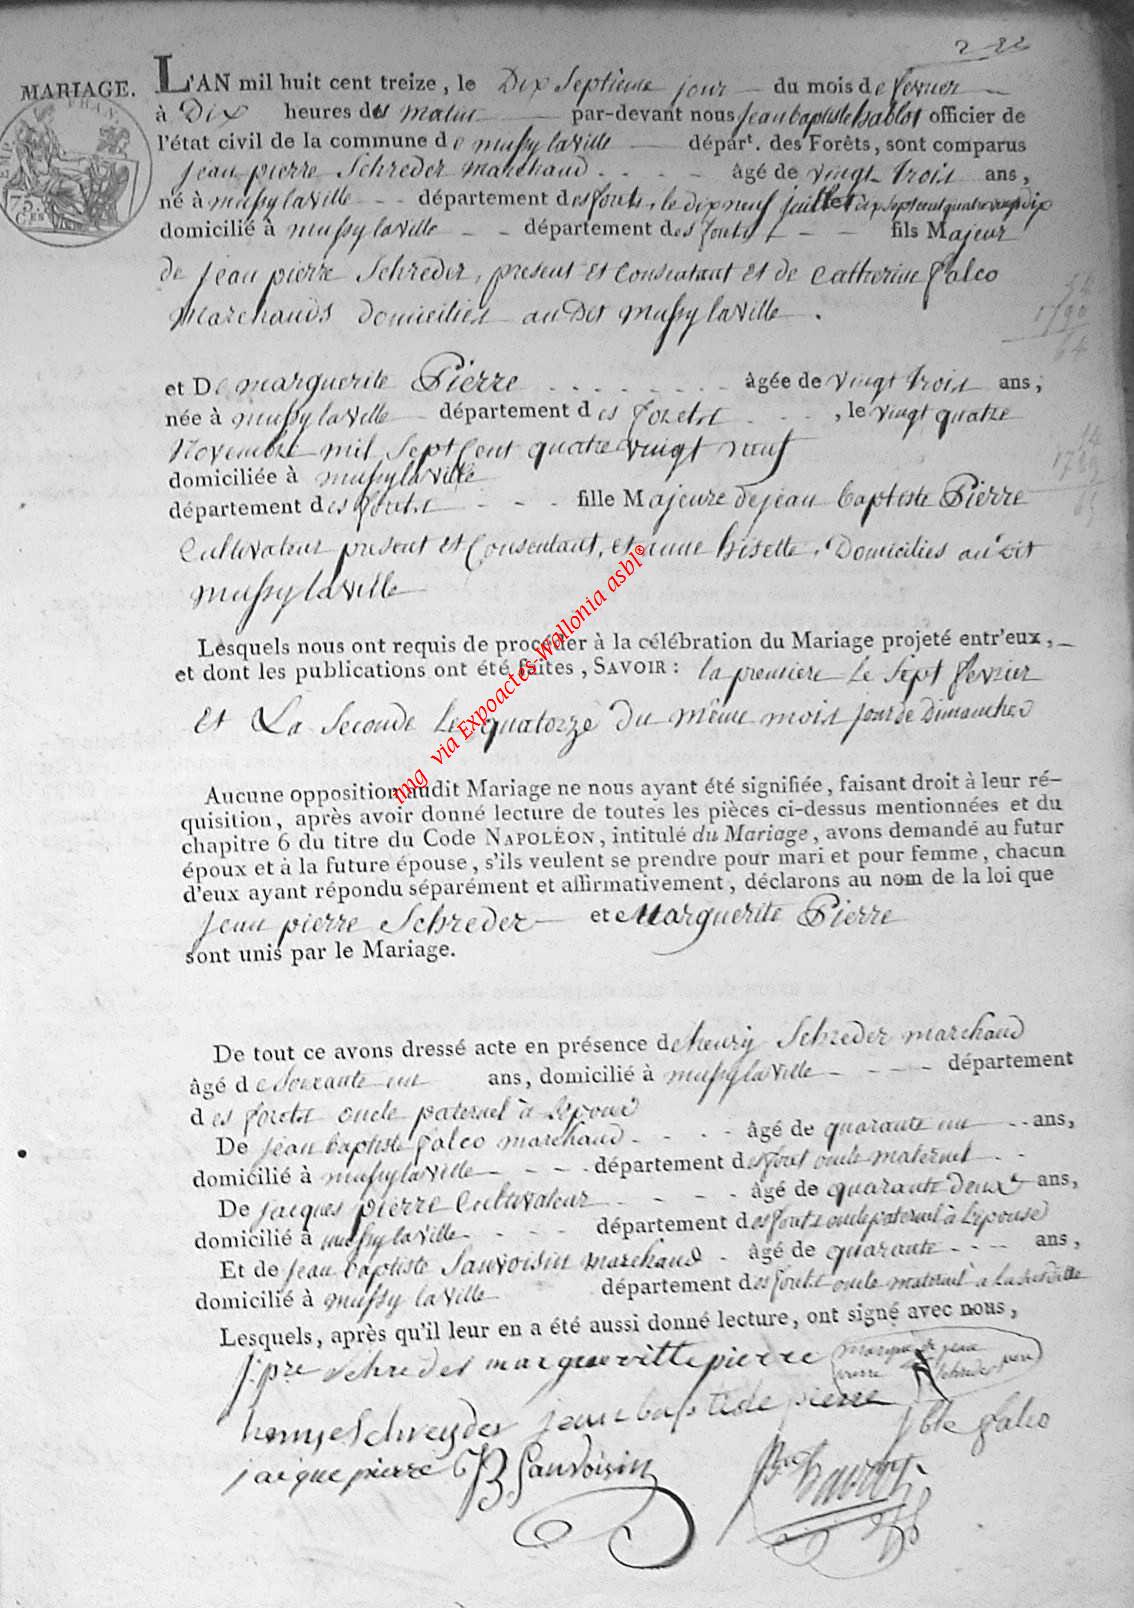 MARIAGE.
L'AN mil huit cent treize, le Dix Septieme jour du mois de fevrier
à Dix heures des matin par-devant nous jean baptiste officier de
l'état civil de la commune de mussy laville départ. des Forêts, sont comparus
jean pierre Schreder marchand âgé de vingt trois ans,
né à mussy laville département des forets, le dix neuf juillet dix sept cent quatre vingt dix
domicilié à mussy laville département des forets fils Majeur
de jean pierre Schreder, present et Consentant et de Catherine falco
Marchands Domiciliés au Dit mussy laville.
et De marguerite Pierre âgée de vingt trois ans,
née à mussy laville département des foretst, le vingt quatre
Novembre mil Sept Cent quatre vingt neuf
domiciliée à mussy laville
département des forets fille Majeure de jean baptiste Pierre
Cultivateur present et Consentant, et anne Domiciliés au dit
mussy laville
Lesquels nous ont requis de procéder à la célébration du Mariage projeté entr'eux,
et dont les publications ont été faites, SAVOIR: la premiere Le Sept fevrier
Et La Seconde Le quatorze Du même mois jour de Dimanches
Aucune opposition audit Mariage ne nous ayant été signifiée, faisant droit à leur ré-
quisition, après avoir donné lecture de toutes les pièces ci-dessus mentionnées et du
chapitre 6 du titre du Code NAPOLÉON, intitulé du Mariage, avons demandé au futur
époux et à la future épouse, s'ils veulent se prendre pour mari et pour femme, chacun
d'eux ayant répondu séparément et affirmativement, déclarons au nom de la loi que
jean pierre Schreder et Marguerite Pierre
sont unis par le Mariage.
De tout ce avons dressé acte en présence de henry Schreder marchand
âgé de soixante un ans, domicilié à mussy laville département
des forets oncle paternel à
De jean baptiste falco marchand âgé de quarante un ans,
domicilié à mussy laville département des foret oncle maternel
De jacques pierre Cultivateur âgé de quarante deux ans,
domicilié à mussy laville département des forets oncle paternel à L'épouse
Et de jean baptiste Sauvoisin marchand âgé de quarante ans,
domicilié à mussy laville département des forets oncle maternel à La
Lesquels, après qu'il leur en a été aussi donné lecture, ont signé avec nous,
j: pre schreder margueritte pierre marque de jean
pierre schreder pere
henry Schreyder jean baptiste pierre jbte falco
jacque pierre JB Sauvoisin
img via Expoactes Wallonia asbl©